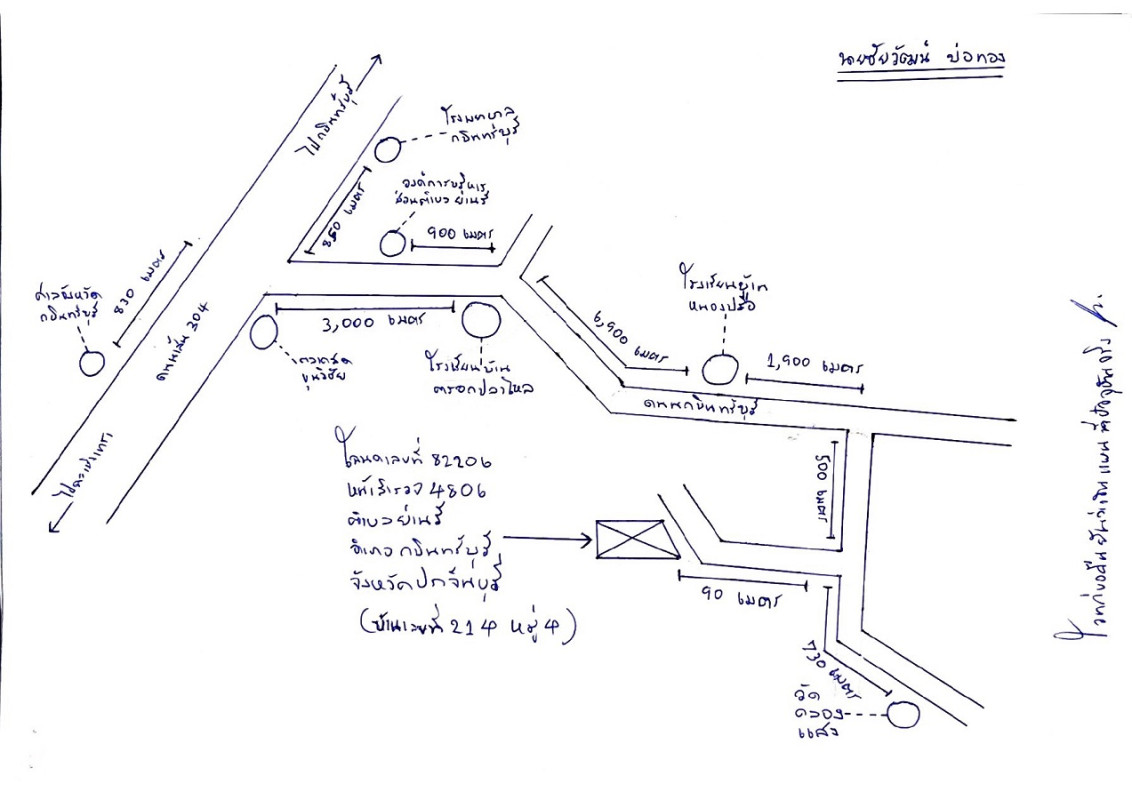 นายชัยวัฒน์ บ่อทอง
ไปกบินทร์บุรี
โรงพยาบาล
กบินทร์บุรี
850 เมตร
องค์การบริหาร
ส่วนตำบลย่านรี
900 เมตร
830 เมตร
ศาลจังหวัด
กบินทร์บุรี
ถนนเส้น 304
3,000 เมตร
ตลาดสด
ขุนวิชัย
โรงเรียนบ้าน
ตรอกปลาไหล
6,900 เมตร
โรงเรียนบ้าน
หนองปรือ
1,900 เมตร
ถนนกบินทร์บุรี
ไปฉะเชิงเทรา
โฉนดเลขที่ 82206
หน้าสำรวจ 4806
ตำบลย่านรี
อำเภอกบินทร์บุรี
จังหวัดปราจีนบุรี
(บ้านเลขที่ 214 หมู่ 4)
500 เมตร
90 เมตร
730 เมตร
วัด
คลอง
แสง
โจทก์ขอยืนยันว่าเป็นแผนที่ปัจจุบันจริง